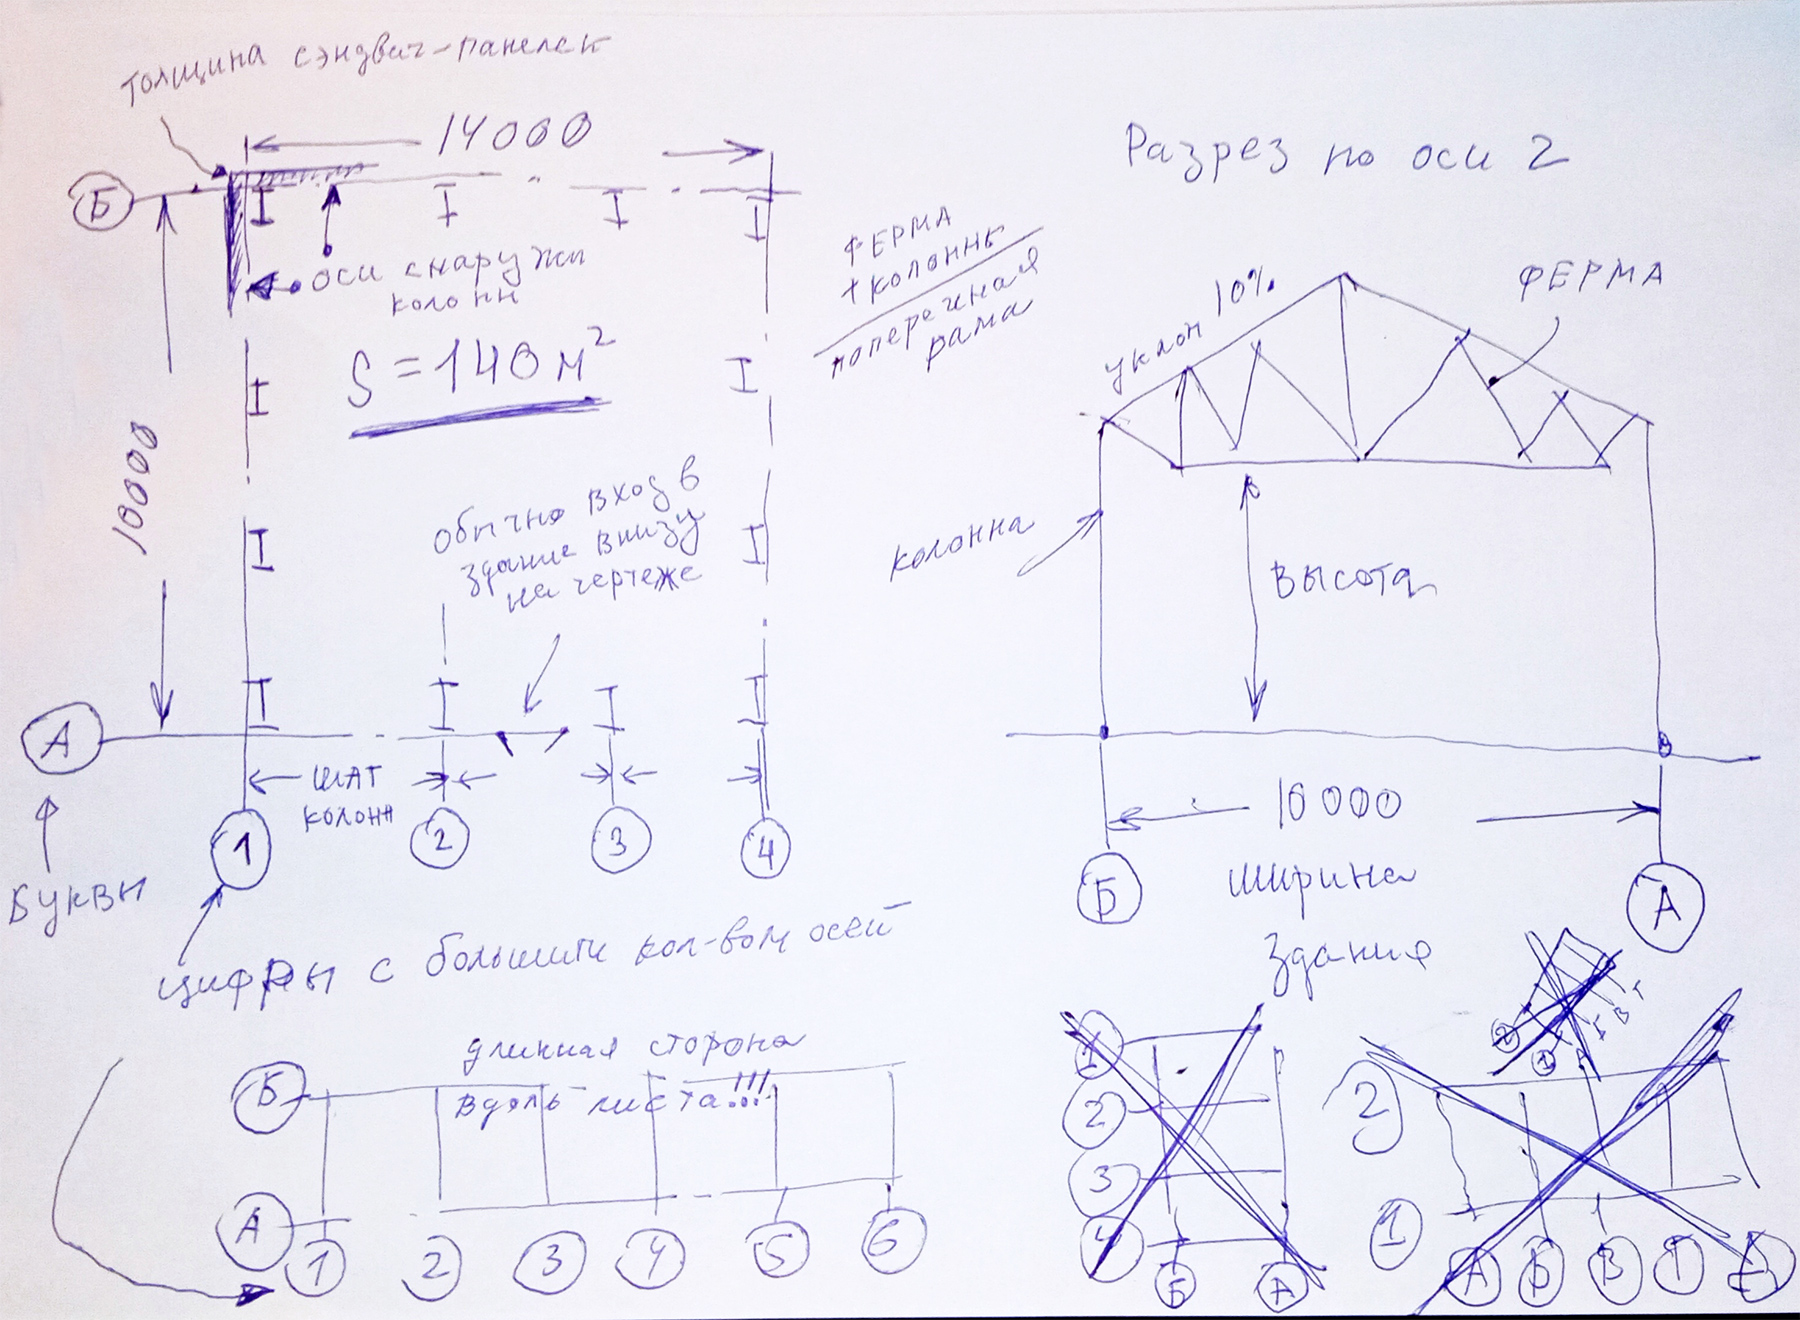 толщина сэндвич-панелей
14000
Б
оси снаружи
колонн
S = 140 м²
10000
обычно вход в
здание внизу
на чертеже
А
шаг
колонн
1
2
3
4
Буквы
цифры с большим кол-вом осей
ФЕРМА
+ колонны
поперечная
рама
Разрез по оси 2
уклон 10%
ФЕРМА
колонна
высота
10 000
ширина
здания
Б
А
длинная сторона
вдоль листа!!!
Б
А
1
2
3
4
5
6
1
2
3
4
Б
А
2
1
А
Б
В
Г
Д
2
1
А
Б
В
Г